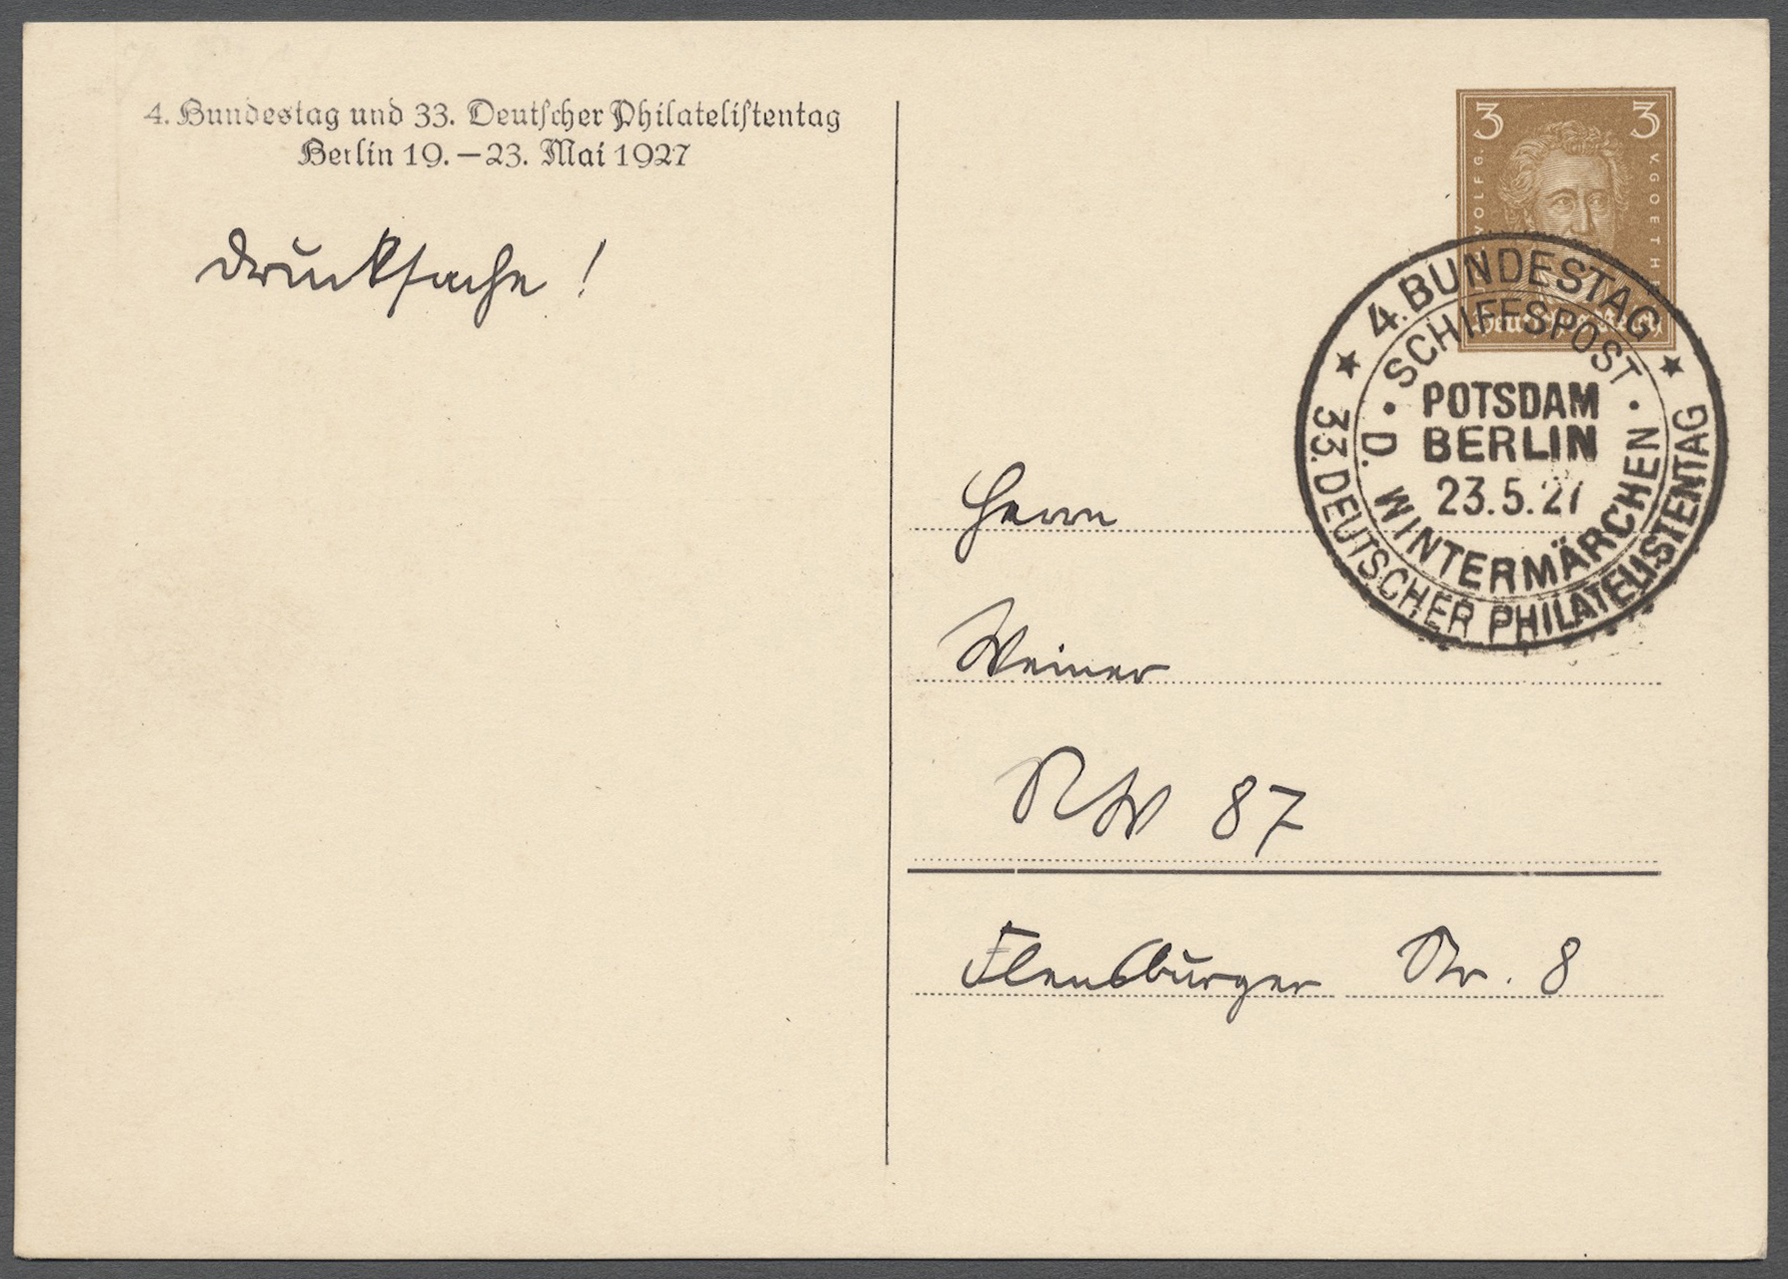 4. Bundestag und 33. Deutscher Philatelistentag
Berlin 19.–23. Mai 1927
Drucksache!
3 3
WOLFG. V. GOETHE
Deutsches Reich
★ 4. BUNDESTAG ★
33. DEUTSCHER PHILATELISTENTAG
SCHIFFSPOST
• D. WINTERMÄRCHEN •
POTSDAM
BERLIN
23.5.27
Herrn
Weiner
NW 87
Flensburger Str. 8